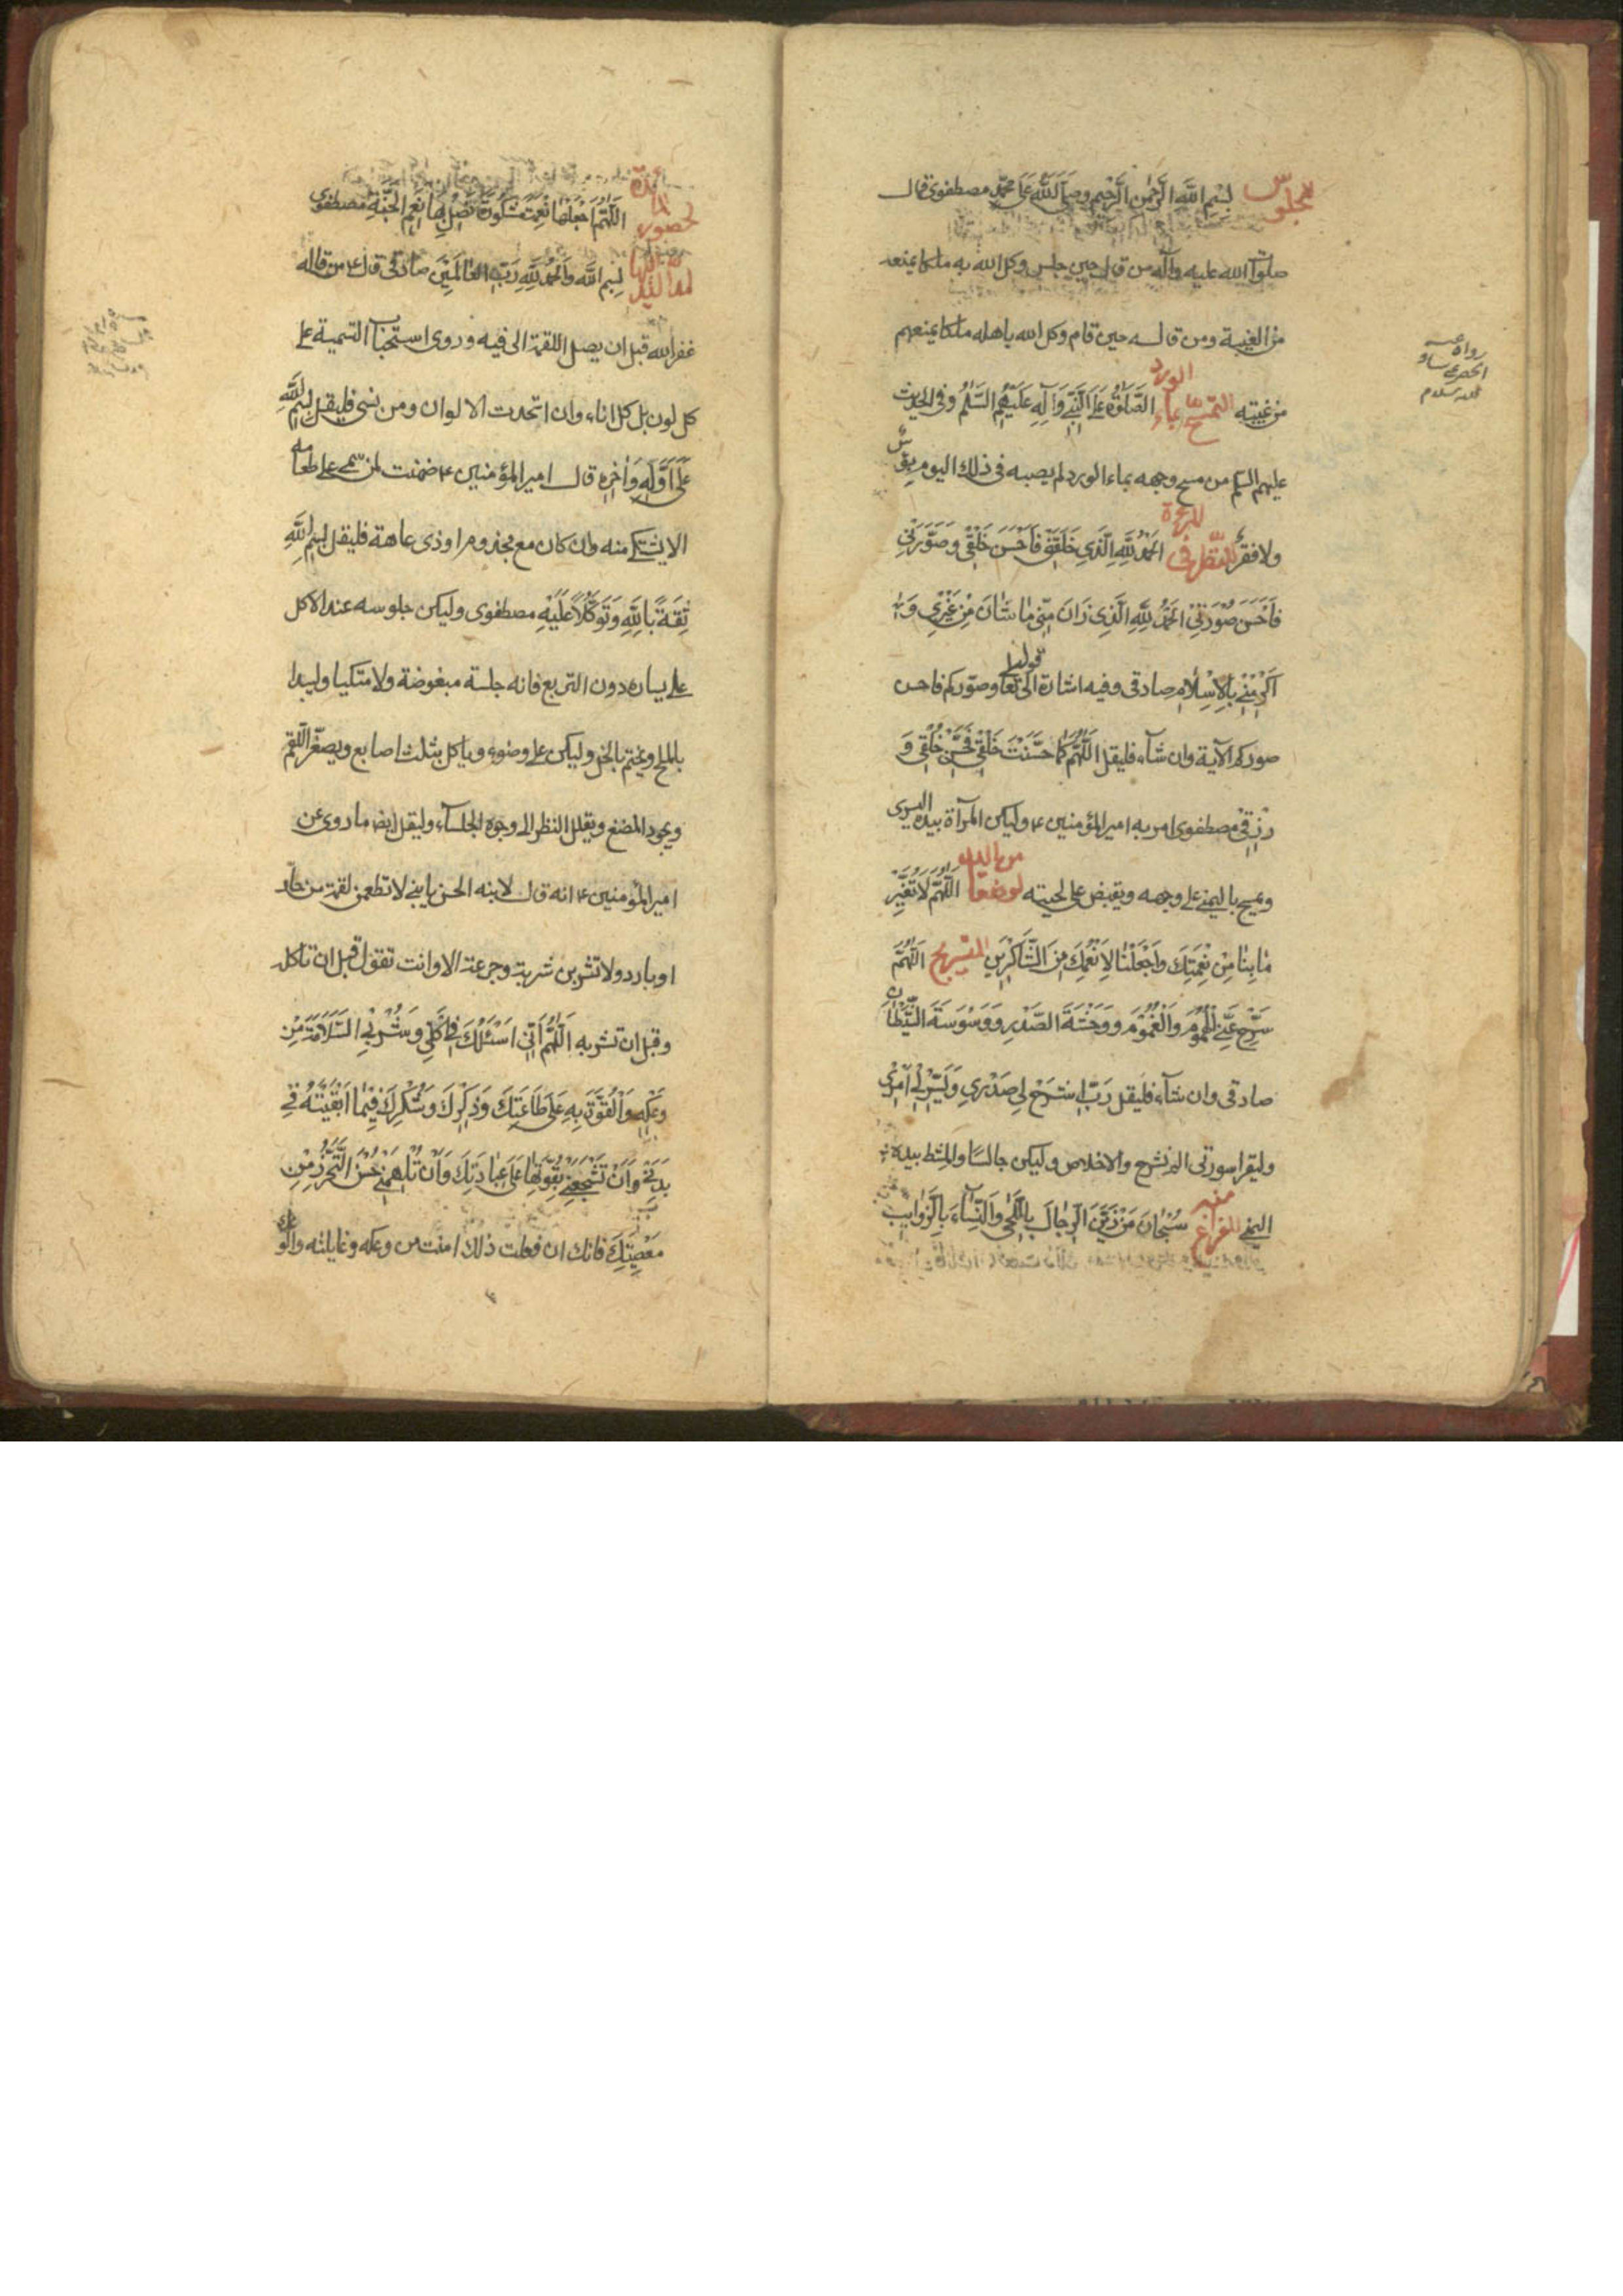 للجلوس بِسْمِ اللَّهِ الرَّحْمٰنِ الرَّحِيمِ وصَلَّى اللَّهُ عَلَى مُحَمَّدٍ مصطفوى قال
صلوات الله عليه وآله من قال حين جلس وكل الله به ملكا يمنعه
من الغيبة ومن قاله حين قام وكل الله باهله ملكا يمنعهم
من غيبته التمسّح بماء الورد الصَّلَوٰةُ عَلَى النَّبِيِّ وَآلِهِ عَلَيْهِمُ السَّلٰمُ وفى الحديث
عليهم السلم من مسح وجهه بماء الورد لم يصبه فى ذلك اليوم بؤس
ولا فقر للنّظر فى المرءة اَلْحَمْدُ لِلَّهِ الَّذِي خَلَقَنِي فَاَحْسَنَ خَلْقِي وَصَوَّرَنِي
فَاَحْسَنَ صُورَتِي اَلْحَمْدُ لِلَّهِ الَّذِي زَانَ مِنِّي مٰا شَانَ مِنْ غَيْرِي وَ
اَكْرَمَنِي بِالْاِسْلٰامِ صادقى وفيه اشارة الى قوله تعالى وصوّركم فاحسن
صوركم الآية وان شآء فليقل اَللّٰهُمَّ كَمٰا حَسَّنْتَ خَلْقِي فَحَسِّنْ خُلْقِي وَ
رِزْقِي مصطفوى امر به امير المؤمنين ع وليكن المرآة بيده اليسرى
ويمسح باليمنى على وجهه ويقبض على لحيته لوضعها من اليد اَللّٰهُمَّ لٰا تُغَيِّرْ
مٰا بِنٰا مِنْ نِعْمَتِكَ وَاجْعَلْنٰا لِاَنْعُمِكَ مِنَ الشَّاكِرِينَ للتسريح اَللّٰهُمَّ
سَرِّحْ عَنِّي الْهُمُومَ وَالْغُمُومَ وَوَحْشَةَ الصَّدْرِ وَوَسْوَسَةَ الشَّيْطَانِ
صادقى وان شآء فليقل رَبِّ اشْرَحْ لِي صَدْرِي وَيَسِّرْ لِي اَمْرِي
وليقرا سورتى الم نشرح والاخلاص وليكن جالسًا والمشط بيده
اليمنى للفراغ منه سُبْحٰانَ مَنْ زَيَّنَ الرِّجٰالَ بِاللُّحٰى وَالنِّسٰآءَ بِالذَّوَائِبِ
رواه
عليه سلام
لحضور المائدة اَللّٰهُمَّ اجْعَلْهٰا نِعْمَةً مَشْكُورَةً تَصِلُ بِهٰا نَعِيمَ الْجَنَّةِ مصطفوى
لمد اليد اليها بِسْمِ اللَّهِ وَالْحَمْدُ لِلَّهِ رَبِّ الْعٰالَمِينَ صادقى قال ع من قاله
غفر الله قبل ان يصل اللقمة الى فيه وروى استحباب التسمية على
كل لون بل كل اناء وان اتحدت الالوان ومن نسى فليقل بِسْمِ اللَّهِ
عَلَى اَوَّلِهِ وَاٰخِرِهِ قال امير المؤمنين ع ضمنت لمن سمى على طعامه
الا يشتكى منه وان كان مع مجذوم او ذى عاهة فليقل بِسْمِ اللَّهِ
ثِقَةً بِاللَّهِ وَتَوَكُّلاً عَلَيْهِ مصطفوى وليكن جلوسه عند الاكل
على يساره دون التربع فانه جلسة مبغوضة ولا متكيا وليبدا
بالملح ويختم بالخل وليكن على وضوء وياكل بثلث اصابع ويصغّر اللقم
ويجود المضغ ويقلل النظر الى وجوه الجلسآء وليقل ايضا ما روى عن
امير المؤمنين ع انه قال لابنه الحسن يا بنى لا تطعمن لقمة من حارّ
او بارد ولا تشربن شربة وجرعة الا وانت تقول قبل ان تاكله
وقبل ان تشربه اَللّٰهُمَّ اِنِّي اَسْئَلُكَ فِي اَكْلِي وَشُرْبِي السَّلَامَةَ مِنْ
وَعْكِهِ وَالْقُوَّةَ بِهِ عَلَى طَاعَتِكَ وَذِكْرِكَ وَشُكْرِكَ فِيمٰا اَبْقَيْتَهُ فِي
بَدَنِي وَاَنْ تُشَجِّعَنِي بِقُوَّتِهٰا عَلَى عِبٰادَتِكَ وَاَنْ تُلْهِمَنِي حُسْنَ التَّحَرُّزِ مِنْ
مَعْصِيَتِكَ فانك ان فعلت ذلك امنت من وعكه وغايلته والو